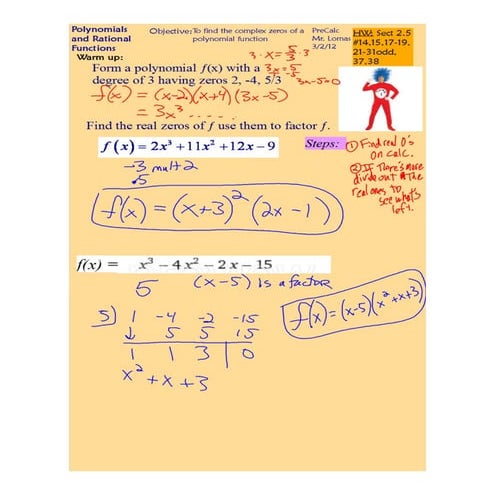 Polynomials and Rational Functions
Objective: To find the complex zeros of a polynomial function
PreCalc
Mr. Lomas
3/2/12
HW: Sect 2.5
#14,15,17-19,
21-31odd,
37,38
Warm up:
3 · x = 5/3 · 3
Form a polynomial f(x) with a
3x = 5
degree of 3 having zeros 2, -4, 5/3
3x - 5 = 0
f(x) = (x-2)(x+4)(3x-5)
= 3x³ ......
Find the real zeros of f use them to factor f.
f(x) = 2x³ + 11x² + 12x - 9
Steps:
① Find real 0's
on calc.
② If There's more
divide out the
real ones to
see what's
left.
-3 mult 2
.5
f(x) = (x+3)² (2x-1)
f(x) = x³ - 4x² - 2x - 15
5 (x-5) is a factor
5) 1 -4 -2 -15
↓ 5 5 15
1 1 3 | 0
x² + x + 3
f(x) = (x-5)(x² + x + 3)